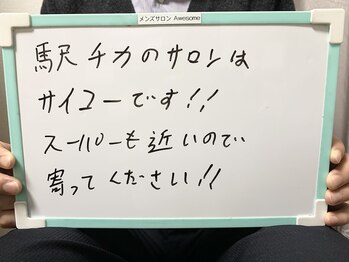 メンズサロン Awesome
駅チカのサロンは
サイコーです!!
スーパーも近いので
寄ってください!!